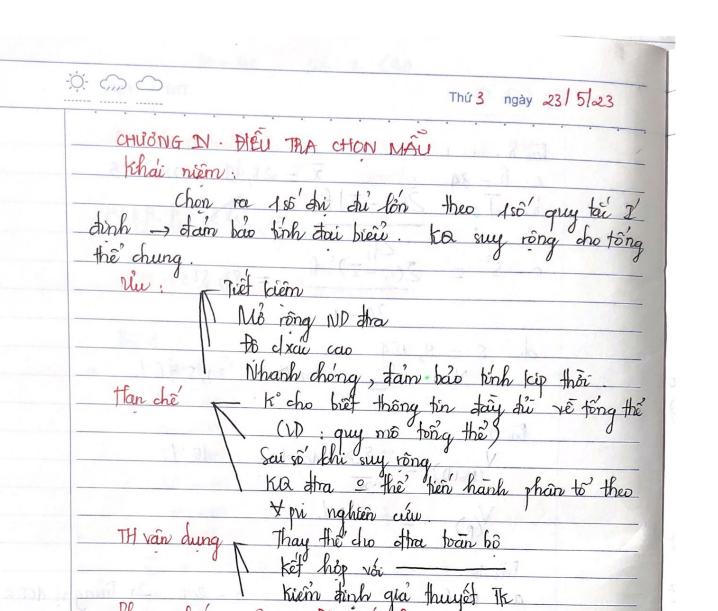 Thứ 3 ngày 23/5/23
CHƯƠNG IV. ĐIỀU TRA CHỌN MẪU
Khái niệm:
Chọn ra 1 số đvị đủ lớn theo 1 số quy tắc
định → đảm bảo tính đại biểu. KQ suy rộng cho tổng
thể chung.
Ưu: Tiết kiệm
Mở rộng ND đtra
Độ cxác cao
Nhanh chóng, đảm bảo tính kịp thời.
Hạn chế K° cho biết thông tin đầy đủ về tổng thể
(VD: quy mô tổng thể)
Sai số khi suy rộng
KQ đtra thể tiến hành phân tổ theo
∀ pvi nghiên cứu.
TH vận dụng Thay thế cho đtra toàn bộ
Kết hợp với
Kiểm định giả thuyết TK